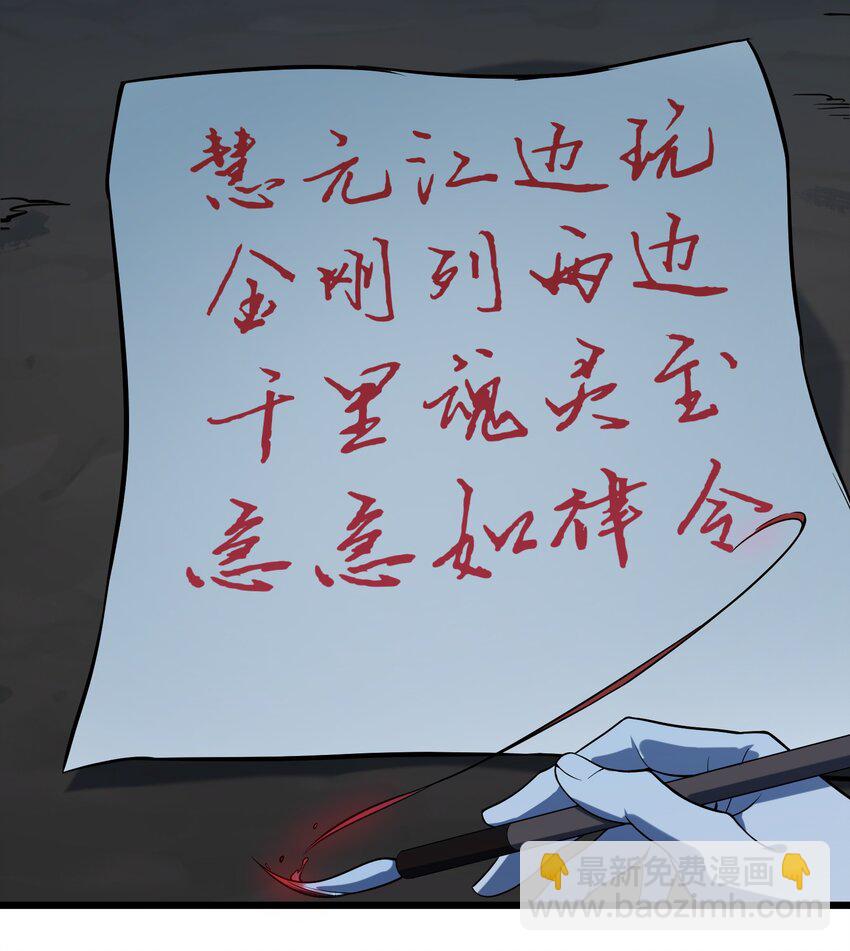 慧元江边玩
金刚列两边
千里魂灵至
急急如律令
👇最新免费漫画👇
www.baozimh.com